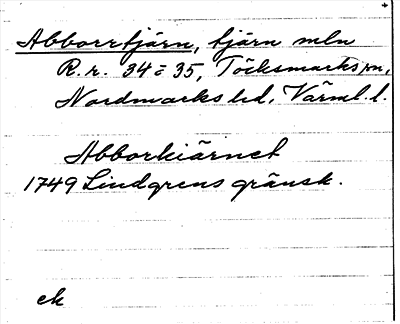 Abborrtjärn, tjärn mln
R. r. 34 = 35, Töcksmarks sn,
Nordmarks hd, Värml. l.
Abborkiärnet
1749 Lindgrens gränsk.
ek